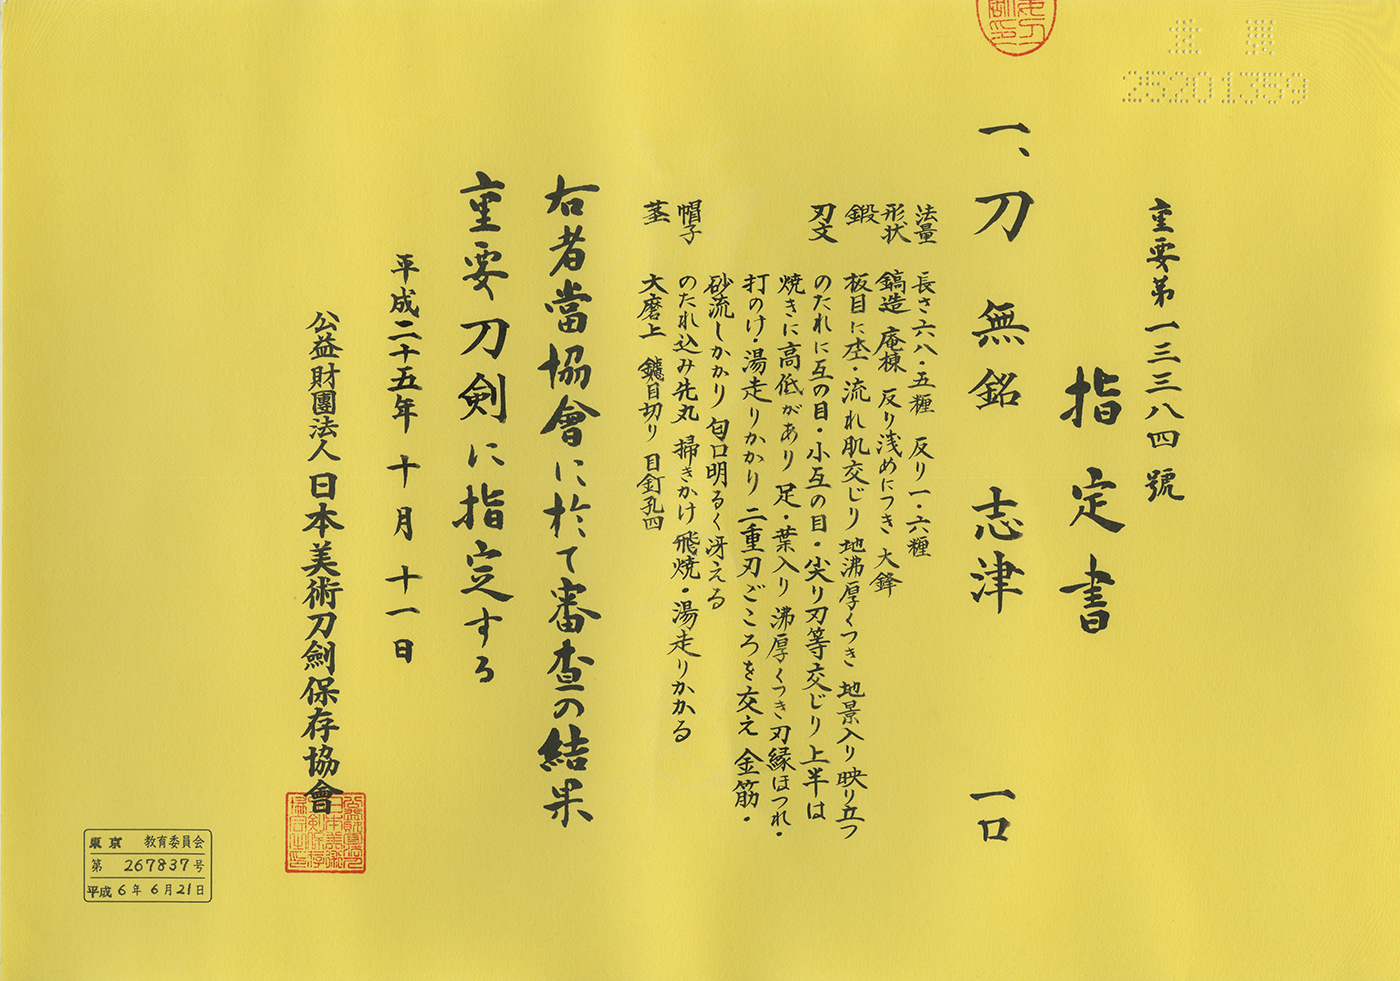 重要
25201359
重要第一三三八四號
指定書
一、刀 無銘 志津 一口
法量 長さ六八・五糎 反り一・六糎
形状 鎬造 庵棟 反り浅めにつき 大鋒
鍛 板目に杢・流れ肌交じり 地沸厚くつき 地景入り 映り立つ
刃文 のたれに互の目・小互の目・尖り刃等交じり 上半は
焼きに高低があり 足・葉入り 沸厚くつき 刃縁ほつれ・
打のけ・湯走りかかり 二重刃ごころを交え 金筋・
砂流しかかり 匂口明るく冴える
帽子 のたれ込み先丸 掃きかけ 飛焼・湯走りかかる
茎 大磨上 鑢目切り 目釘孔四
右者當協會に於て審査の結果
重要刀剣に指定する
平成二十五年十月十一日
公益財團法人日本美術刀劍保存協會
東京 教育委員会
第 267837号
平成6年6月21日